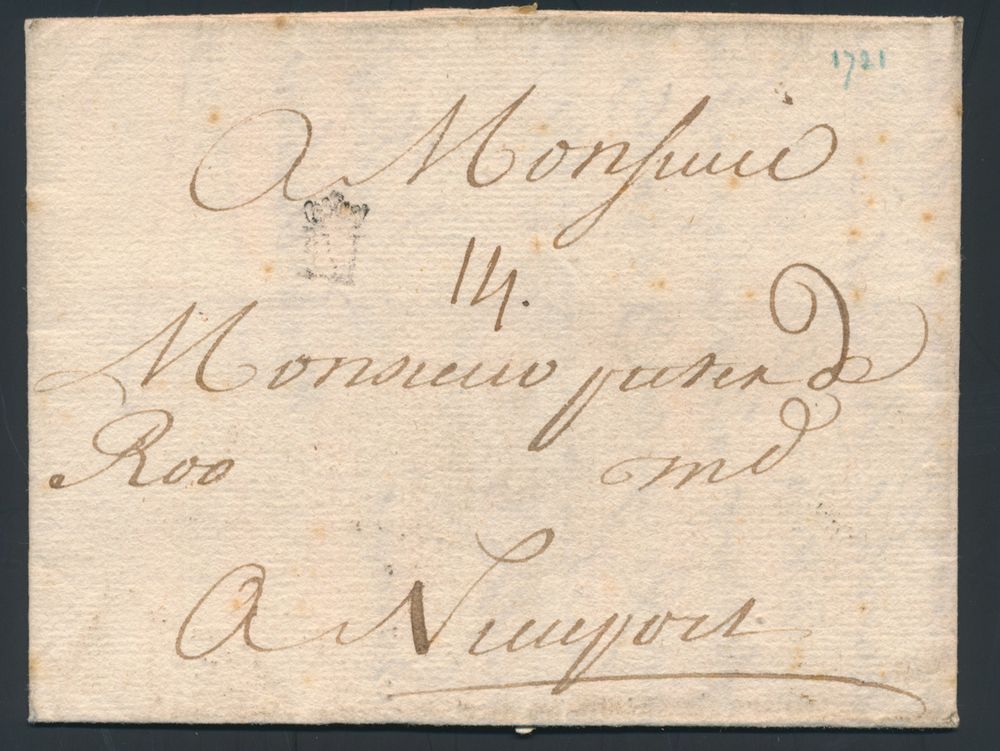 1721
A Monsieur
14.
Monsieur pieter d
Roo md
A Nieuport